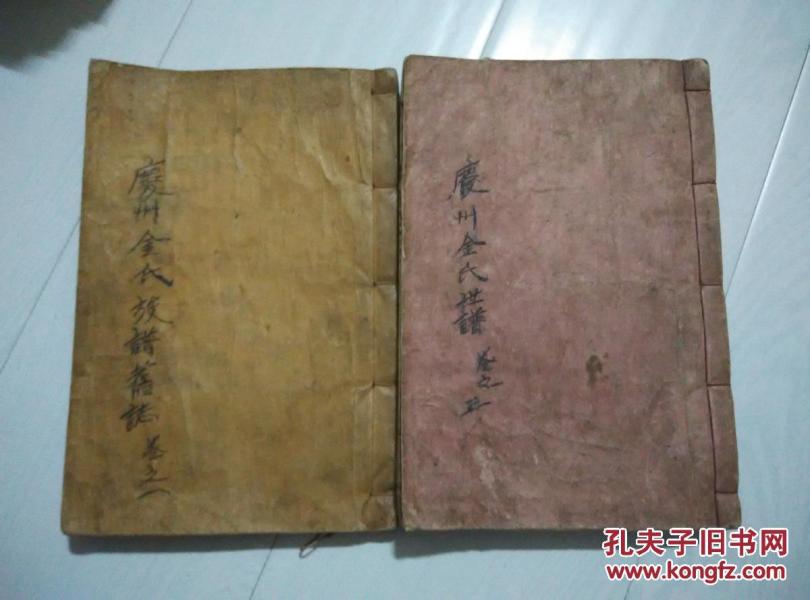 慶州金氏族譜舊誌 卷之一
慶州金氏世譜 卷之五
孔夫子旧书网
www.kongfz.com